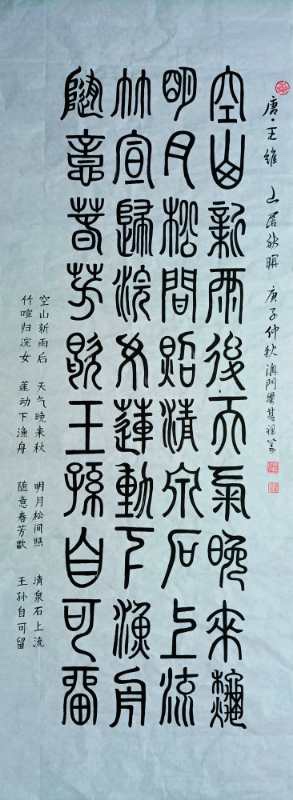 唐·王維 山居秋暝 庚子仲秋 澳門
空山新雨後天氣晚來秋
明月松間照清泉石上流
竹宣歸浣女蓮動下漁舟
隨意春芳歇王孫自可留
空山新雨后 天气晚来秋 明月松间照 清泉石上流
竹喧归浣女 莲动下渔舟 随意春芳歇 王孙自可留